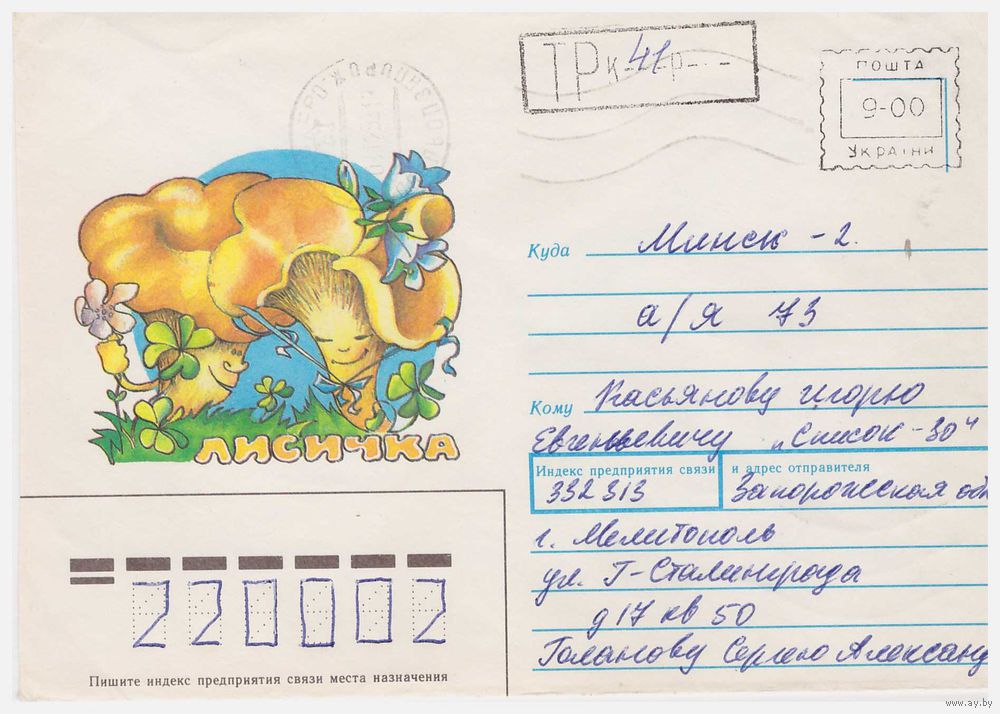 ТРк 41 р
ПОШТА
9-00
УКРАЇНИ
ЛИСИЧКА
Куда Минск - 2.
а/я 73
Кому Касьянову Игорю
Евгеньевичу „Список - 30“
Индекс предприятия связи и адрес отправителя
332313 Запорожская об
г. Мелитополь
ул. Г-Сталинграда
д 17 кв 50
Голанову Сергею Александ
220002
Пишите индекс предприятия связи места назначения
www.ay.by